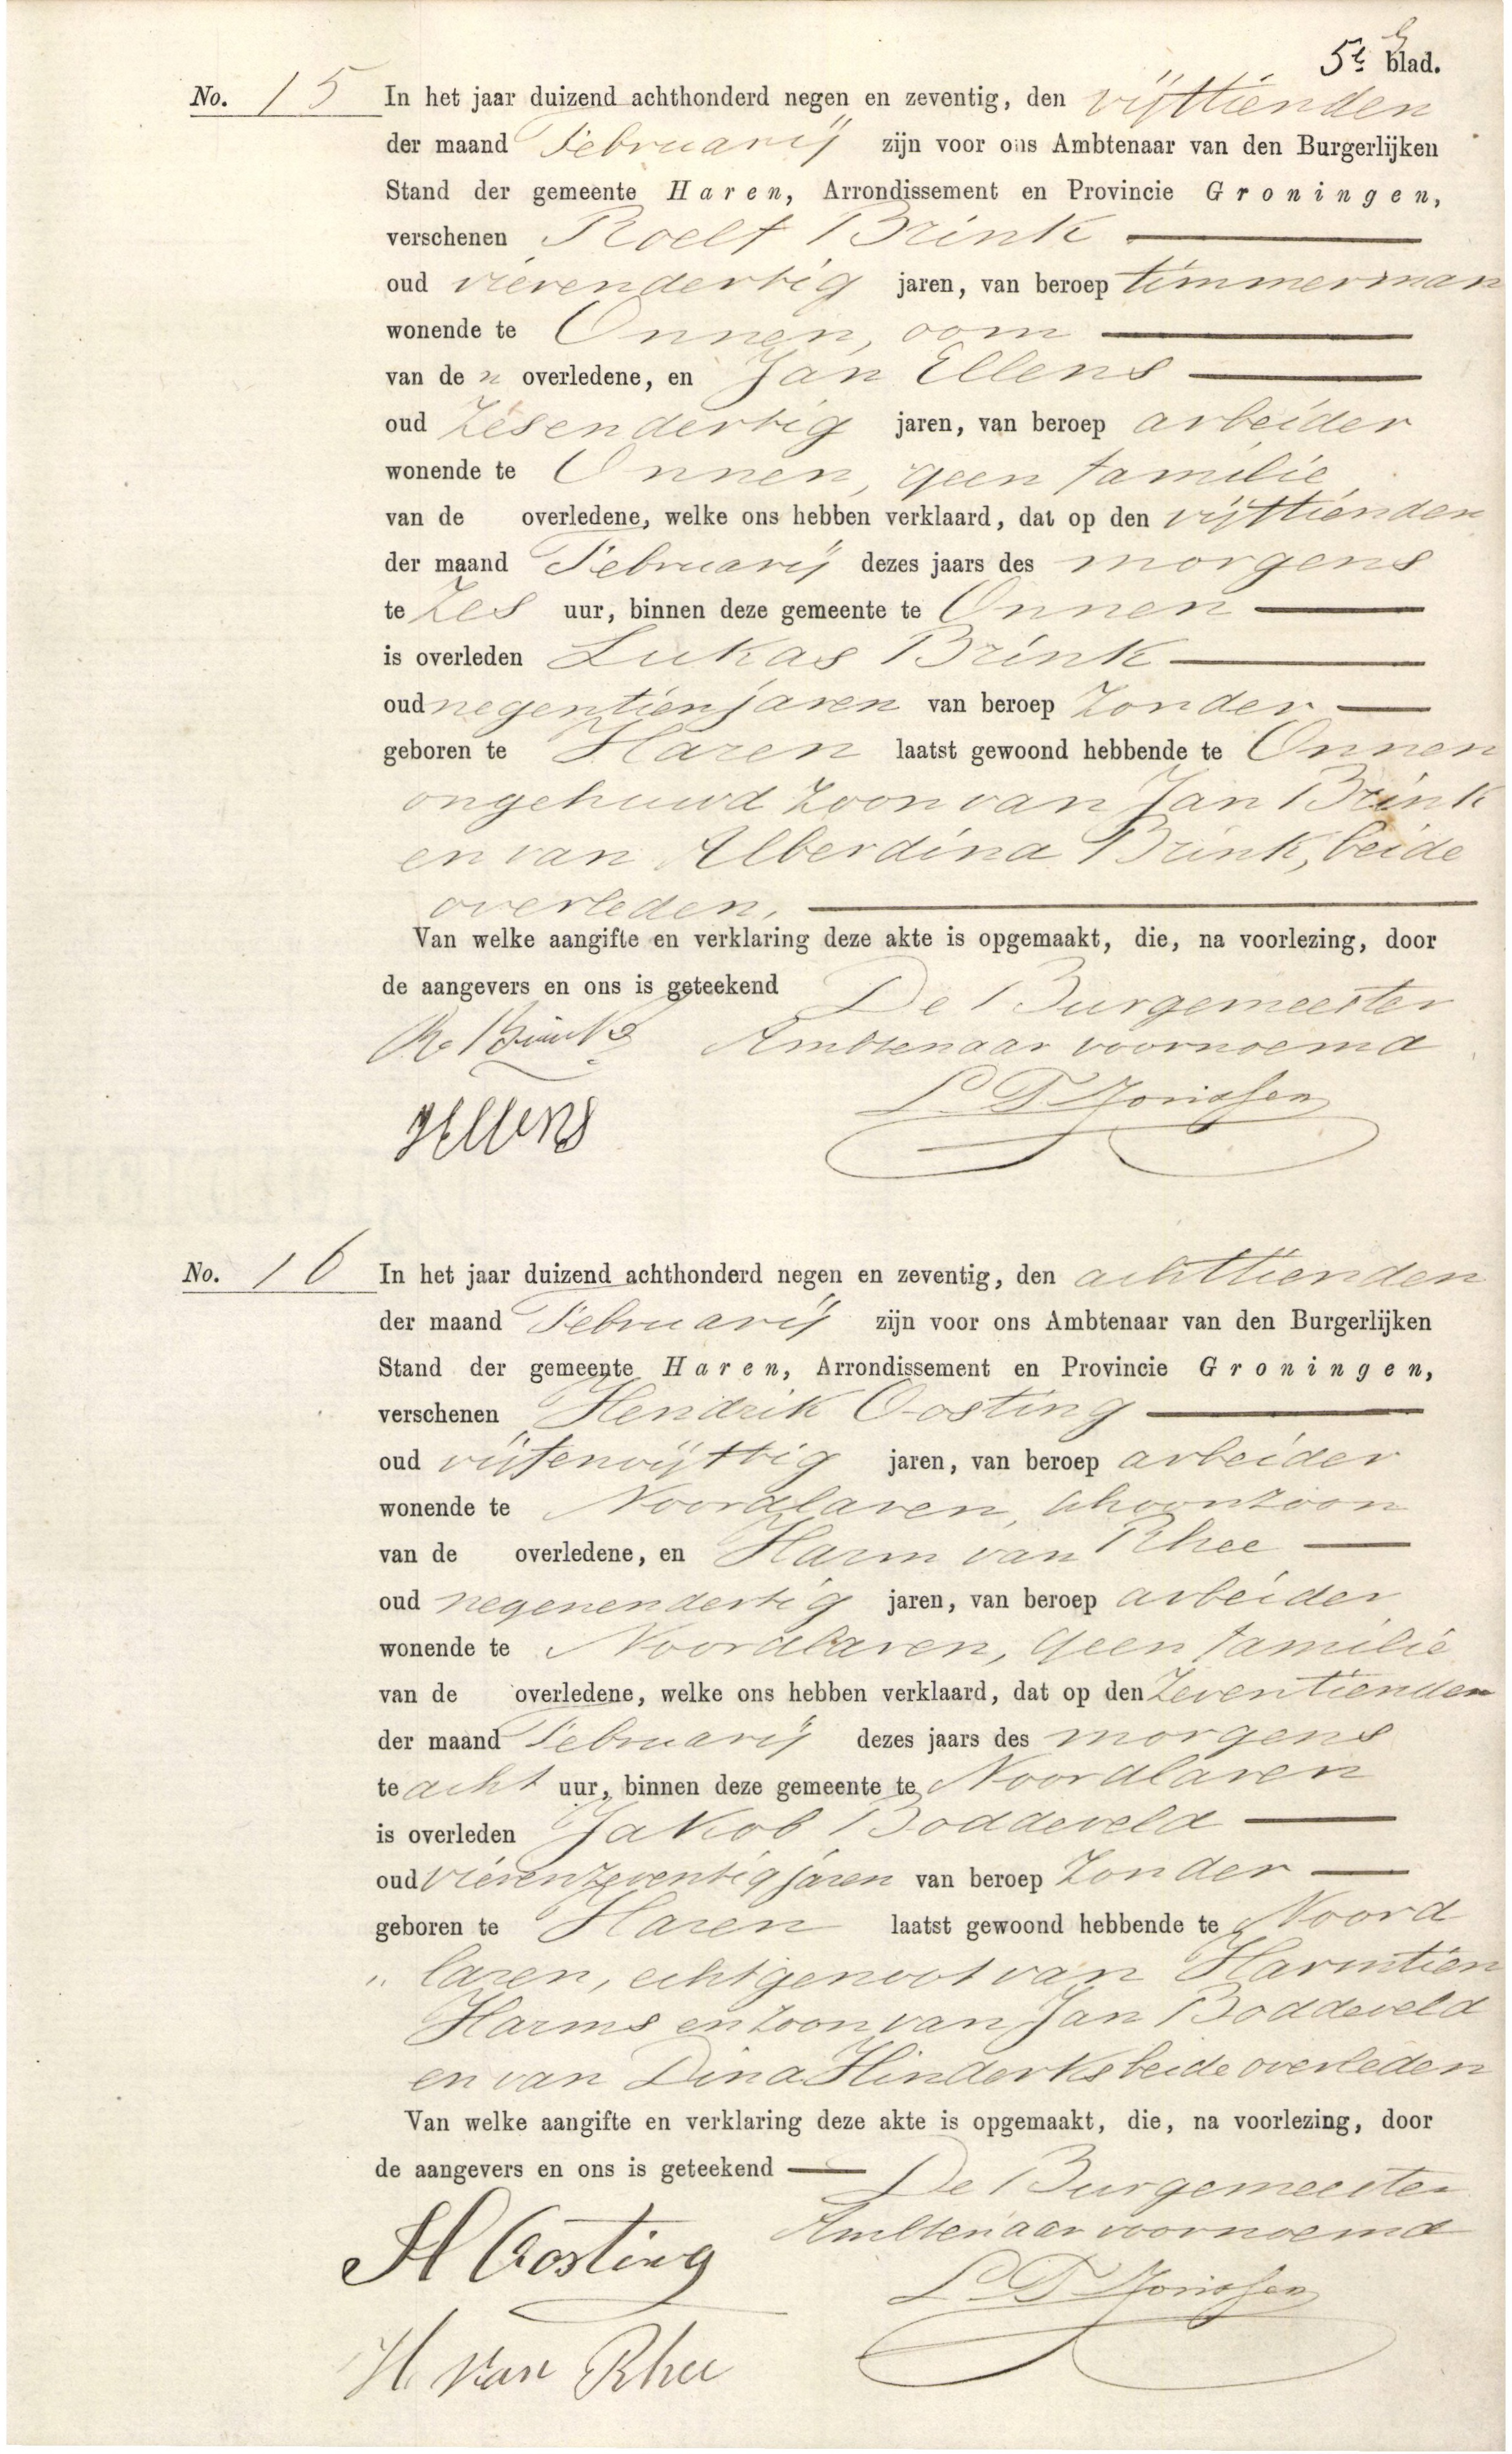 5e blad.
No. 15 In het jaar duizend achthonderd negen en zeventig, den vijftienden
der maand Februarij zijn voor ons Ambtenaar van den Burgerlijken
Stand der gemeente Haren, Arrondissement en Provincie Groningen,
verschenen Roelf Brink
oud vierendertig jaren, van beroep timmerman
wonende te Onnen, oom
van de n overledene, en Jan Ellens
oud zesendertig jaren, van beroep arbeider
wonende te Onnen, geen familie
van de overledene, welke ons hebben verklaard, dat op den vijftienden
der maand Februarij dezes jaars des morgens
te zes uur, binnen deze gemeente te Onnen
is overleden Lukas Brink
oud negentien jaren van beroep zonder
geboren te Haren laatst gewoond hebbende te Onnen
ongehuwd zoon van Jan Brink
en van Alberdina Brink, beide
overleden.
Van welke aangifte en verklaring deze akte is opgemaakt, die, na voorlezing, door
de aangevers en ons is geteekend De Burgemeester
R. Brink Ambtenaar voornoemd
JEllens L T Jorissen
No. 16 In het jaar duizend achthonderd negen en zeventig, den achttienden
der maand Februarij zijn voor ons Ambtenaar van den Burgerlijken
Stand der gemeente Haren, Arrondissement en Provincie Groningen,
verschenen Hendrik Oosting
oud vijfenvijftig jaren, van beroep arbeider
wonende te Noordlaren, schoonzoon
van de overledene, en Harm van Rhee
oud negenendertig jaren, van beroep arbeider
wonende te Noordlaren, geen familie
van de overledene, welke ons hebben verklaard, dat op den zeventienden
der maand Februarij dezes jaars des morgens
te acht uur, binnen deze gemeente te Noordlaren
is overleden Jakob Boddeveld
oud vierenzeventig jaren van beroep zonder
geboren te Haren laatst gewoond hebbende te Noord
" laren, echtgenoot van Harmtien
Harms en zoon van Jan Boddeveld
en van Dina Hinderks beide overleden
Van welke aangifte en verklaring deze akte is opgemaakt, die, na voorlezing, door
de aangevers en ons is geteekend De Burgemeester
H Oosting Ambtenaar voornoemd
L T Jorissen
H. van Rhee